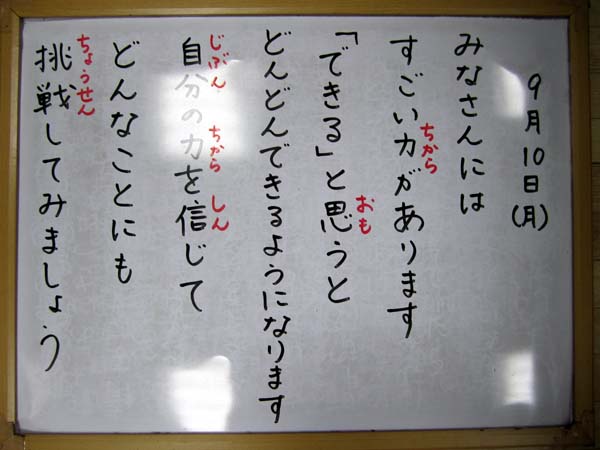 9月10日(月)
みなさんには
すごい力があります
ちから
「できる」と思うと
おも
どんどんできるようになります
自分の力を信じて
じぶん ちから しん
どんなことにも
挑戦してみましょう
ちょうせん